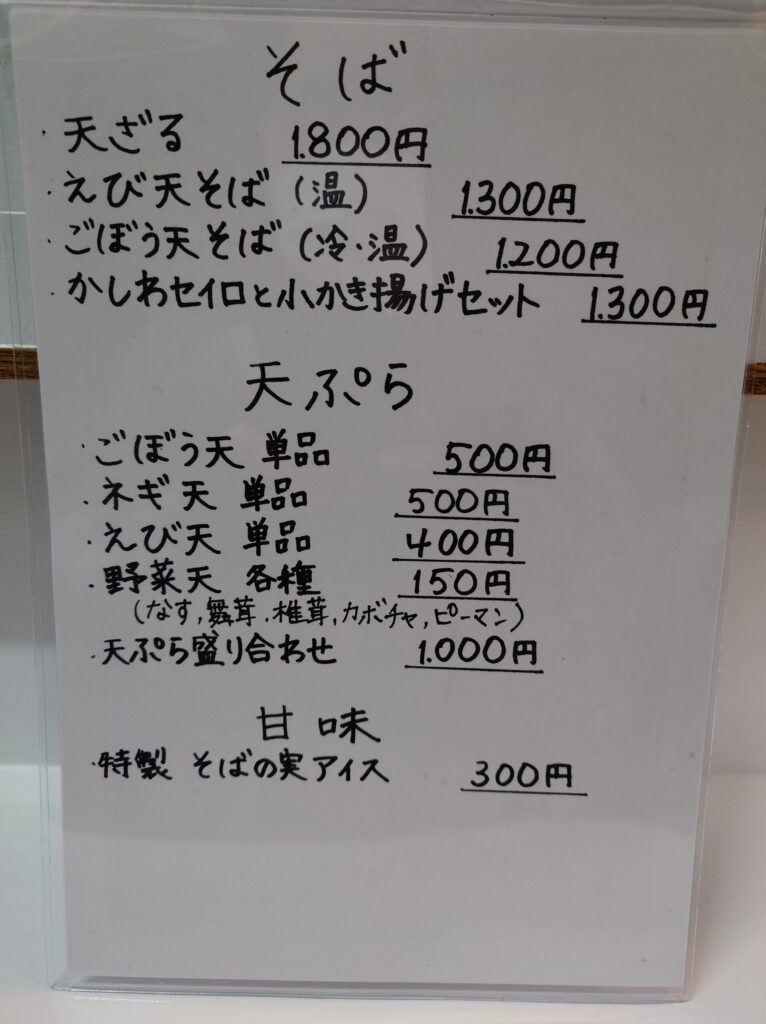 そば
・天ざる 1.800円
・えび天そば(温) 1.300円
・ごぼう天そば(冷・温) 1.200円
・かしわセイロと小かき揚げセット 1.300円
天ぷら
・ごぼう天 単品 500円
・ネギ天 単品 500円
・えび天 単品 400円
・野菜天 各種 150円
(なす,舞茸.椎茸,カボチャ,ピーマン)
・天ぷら盛り合わせ 1.000円
甘味
・特製 そばの実アイス 300円